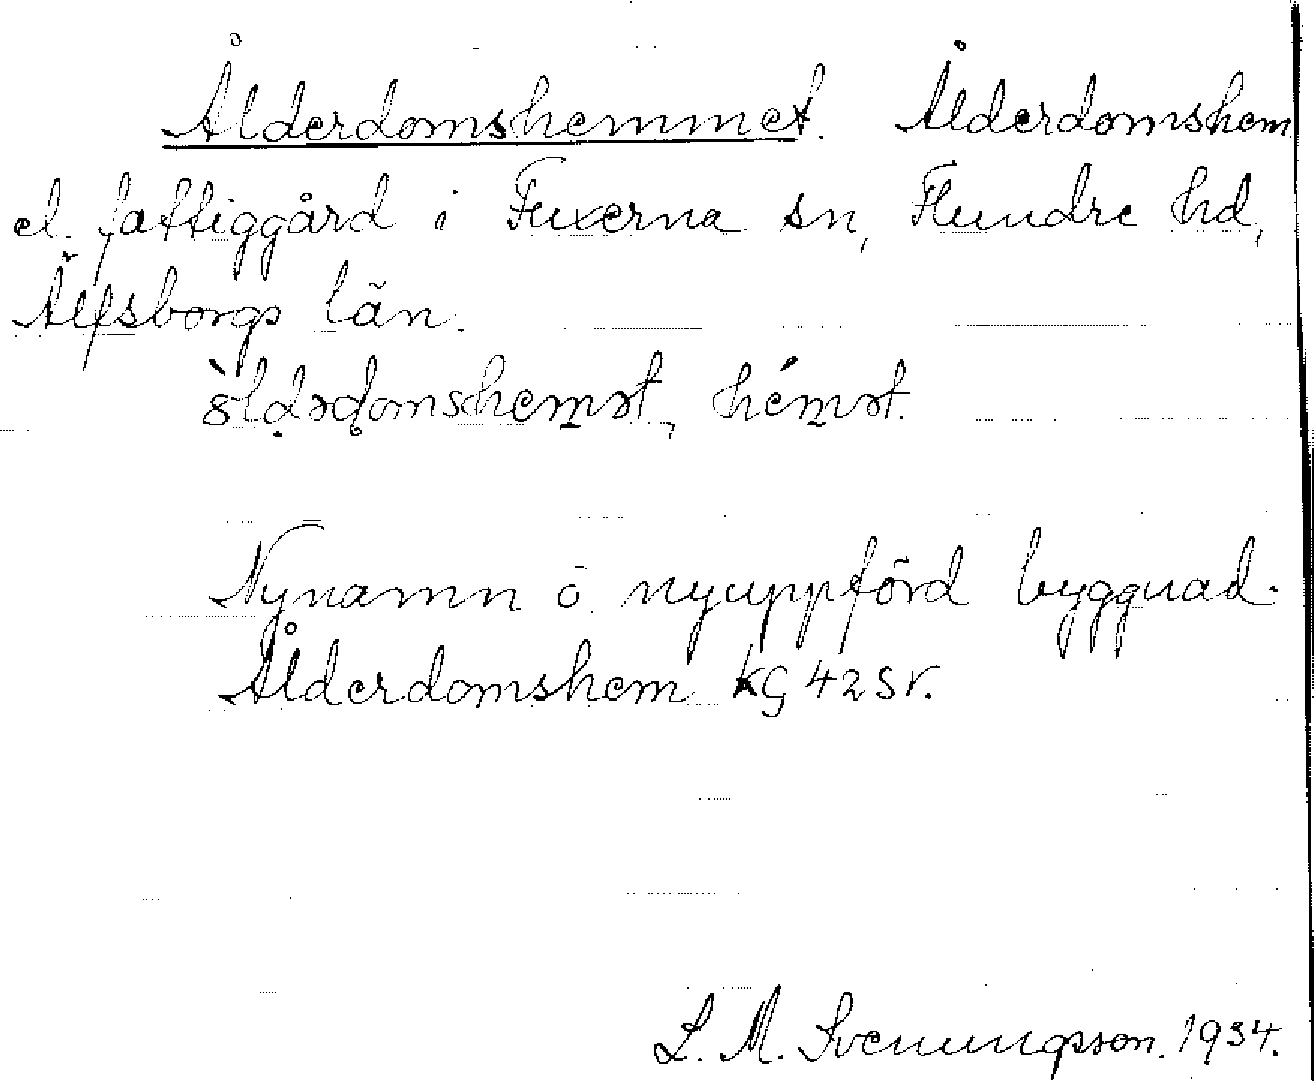 Ålderdomshemmet. Ålderdomshem
el. fattiggård i Fuxerna sn, Flundre hd,
Älfsborgs län.
hémət.
Nynamn o. nyuppförd byggnad.
Ålderdomshem KG 42 SV.
L. M. Svenungsson. 1934.